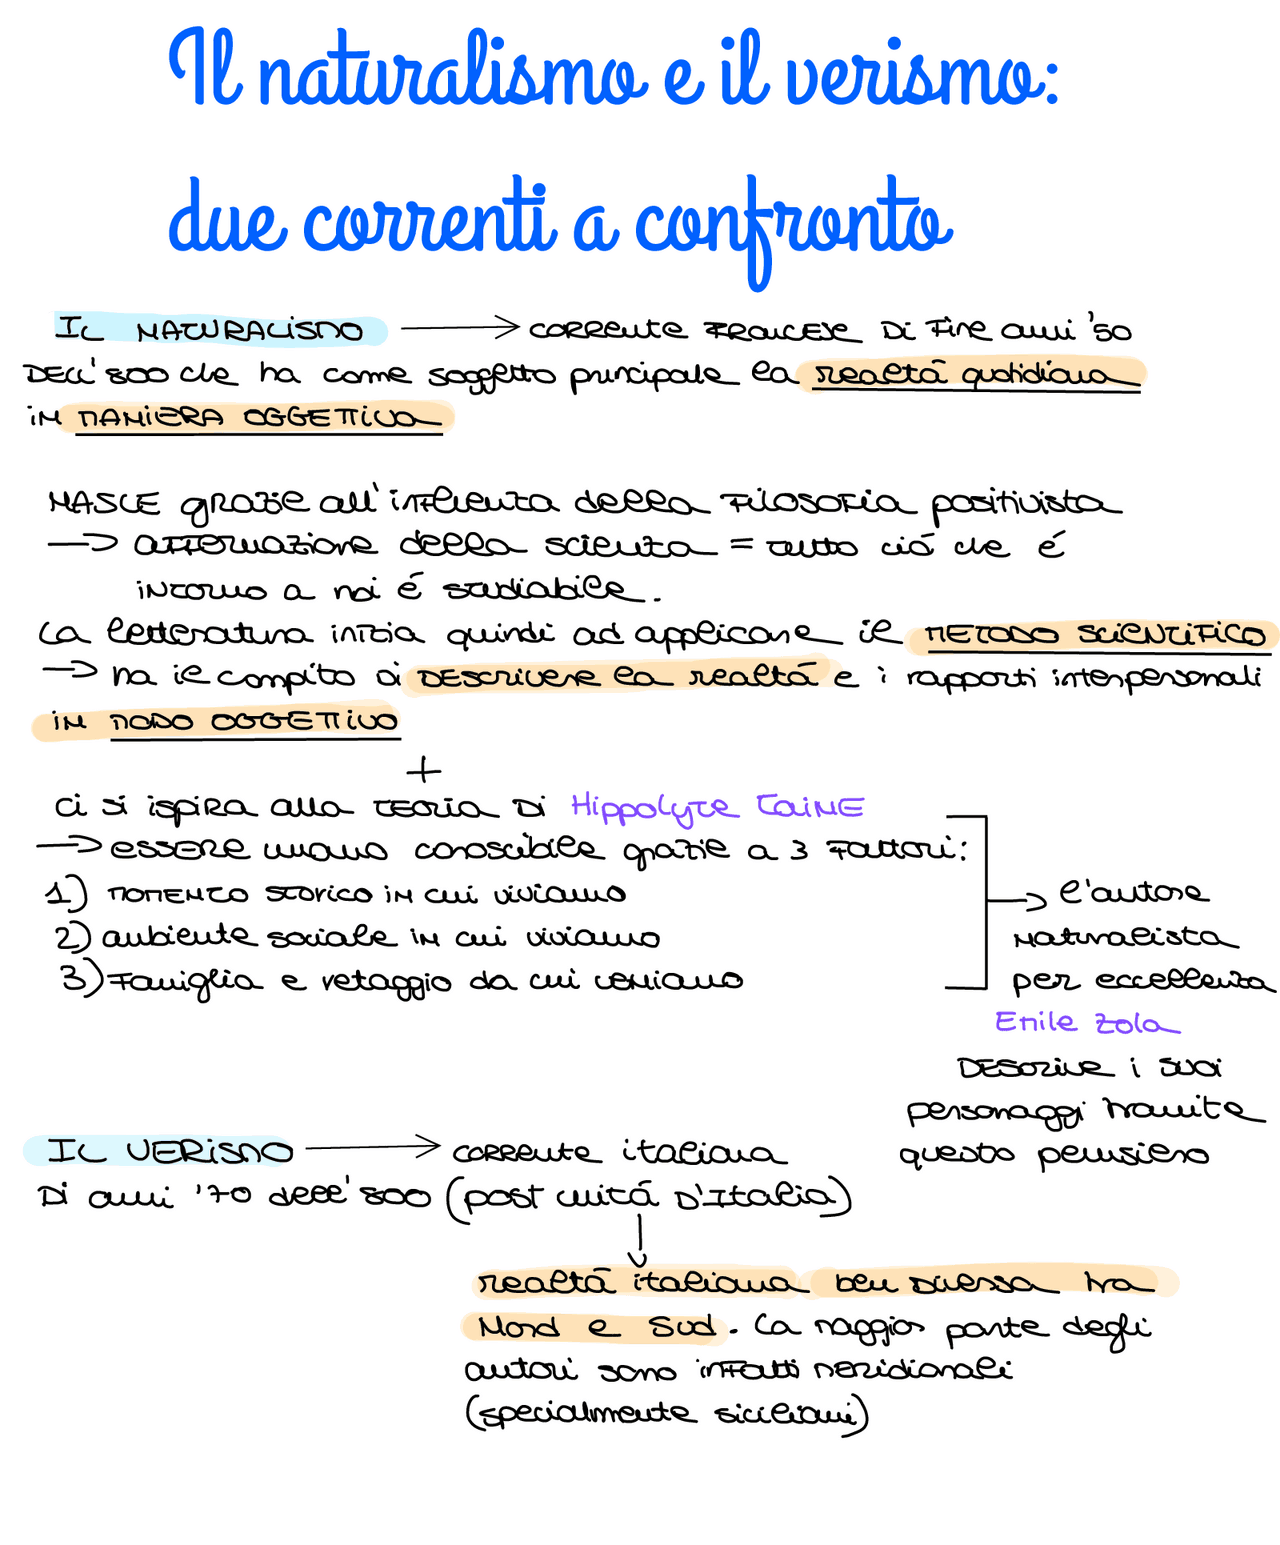 Il naturalismo e il verismo:
due correnti a confronto
IL NATURALISMO → CORRENTE FRANCESE DI FINE anni '50
DELL' 800 che ha come soggetto principale la realtá quotidiana
IN MANIERA OGGETTIVA
NASCE grazie all'influenza della FILOSOFIA positivista
→ affermazione della scienza = tutto ció che é
intorno a noi é studiabile.
La letteratura inizia quindi ad applicare il METODO SCIENTIFICO
→ ha il compito di DESCRIVERE la realtá e i rapporti interpersonali
IN MODO OGGETTIVO
+
ci si ispira alla TEORIA DI Hippolyte TAINE
→ ESSERE umano conoscibile grazie a 3 Fattori:
1) MOMENTO STORICO IN cui viviamo
2) ambiente sociale IN cui viviamo
3) Famiglia e retaggio da cui veniamo
→ l'autore
naturalista
per eccellenza
Emile Zola
DESCRIVE i suoi
personaggi tramite
questo pensiero
IL VERISMO → CORRENTE italiana
DI anni '70 dell' 800 (post unitá D'Italia)
↓
realtá italiana ben diversa tra
Nord e Sud. La maggior parte degli
autori sono infatti meridionali
(specialmente siciliani)